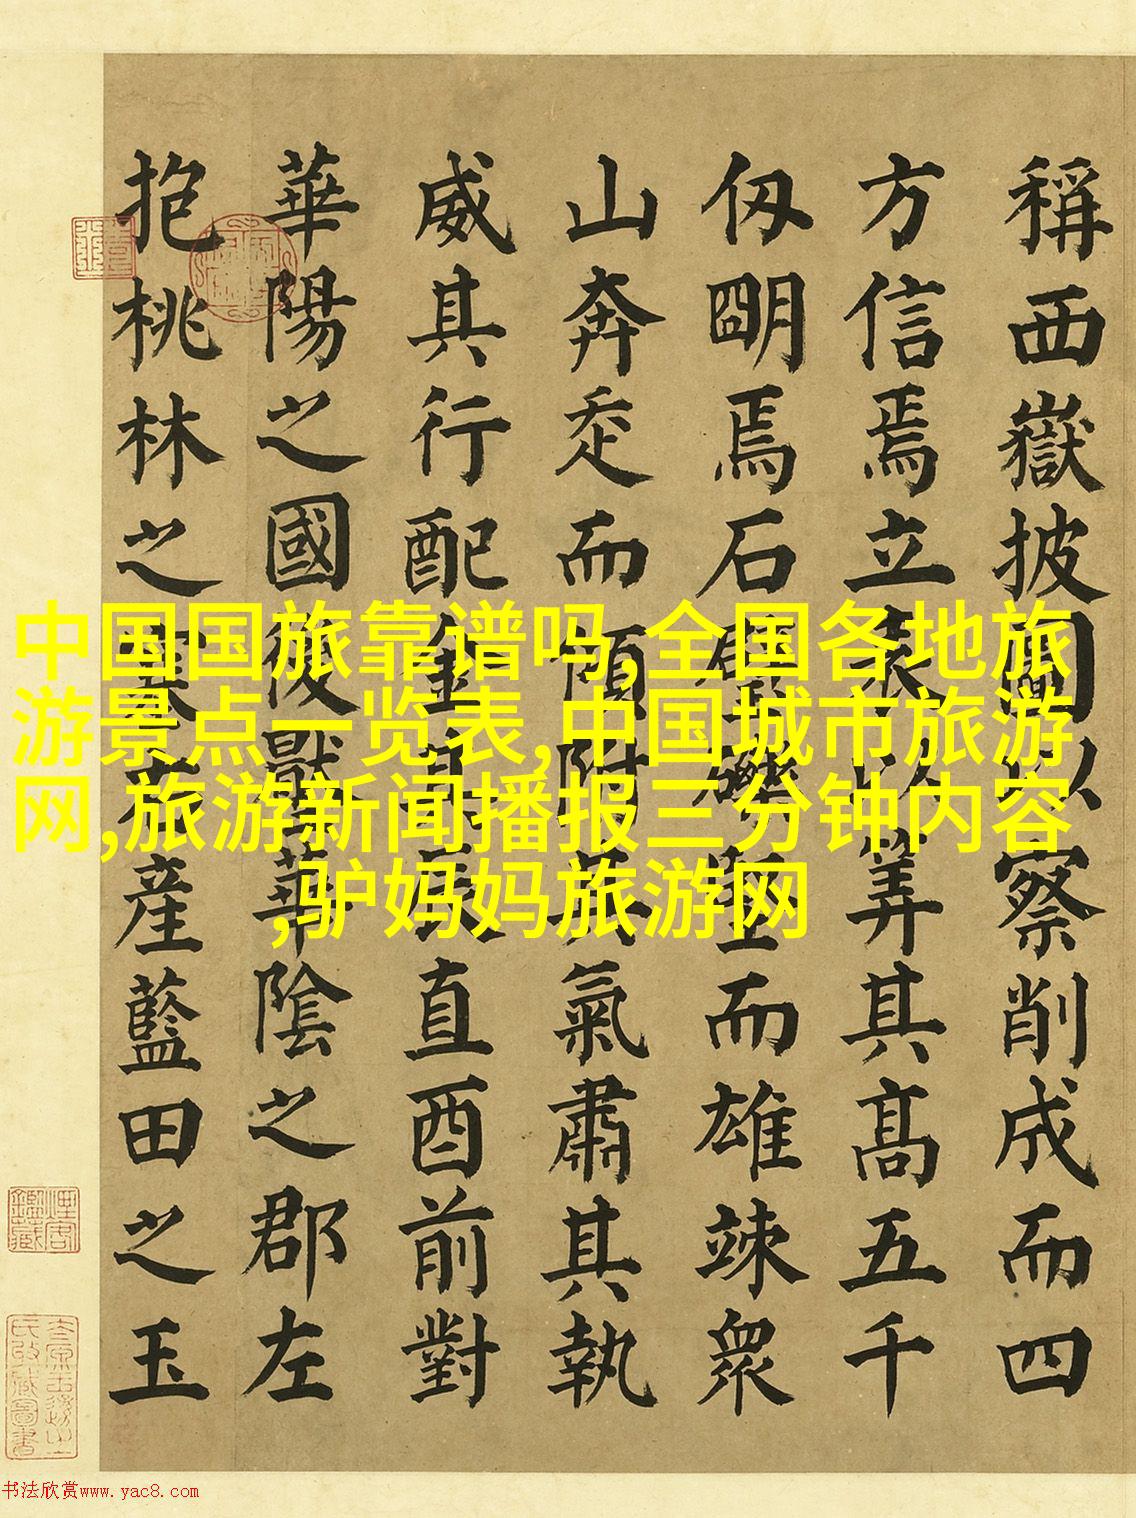 稱西嶽披圖以察削成而四
方信焉立表以筭其髙五千
仭朙焉石而雄竦眾
山奔走而傾附其氣肅其執
威其行配金其辰直酉前對
華陽之國後壓華陰之郡左
抱桃林之塞右產藍田之玉
中国国旅靠谱吗,全国各地旅
游景点一览表,中国城市旅游
网,旅游新闻播报三分钟内容
,驴妈妈旅游网
书法欣赏www.yac8.com